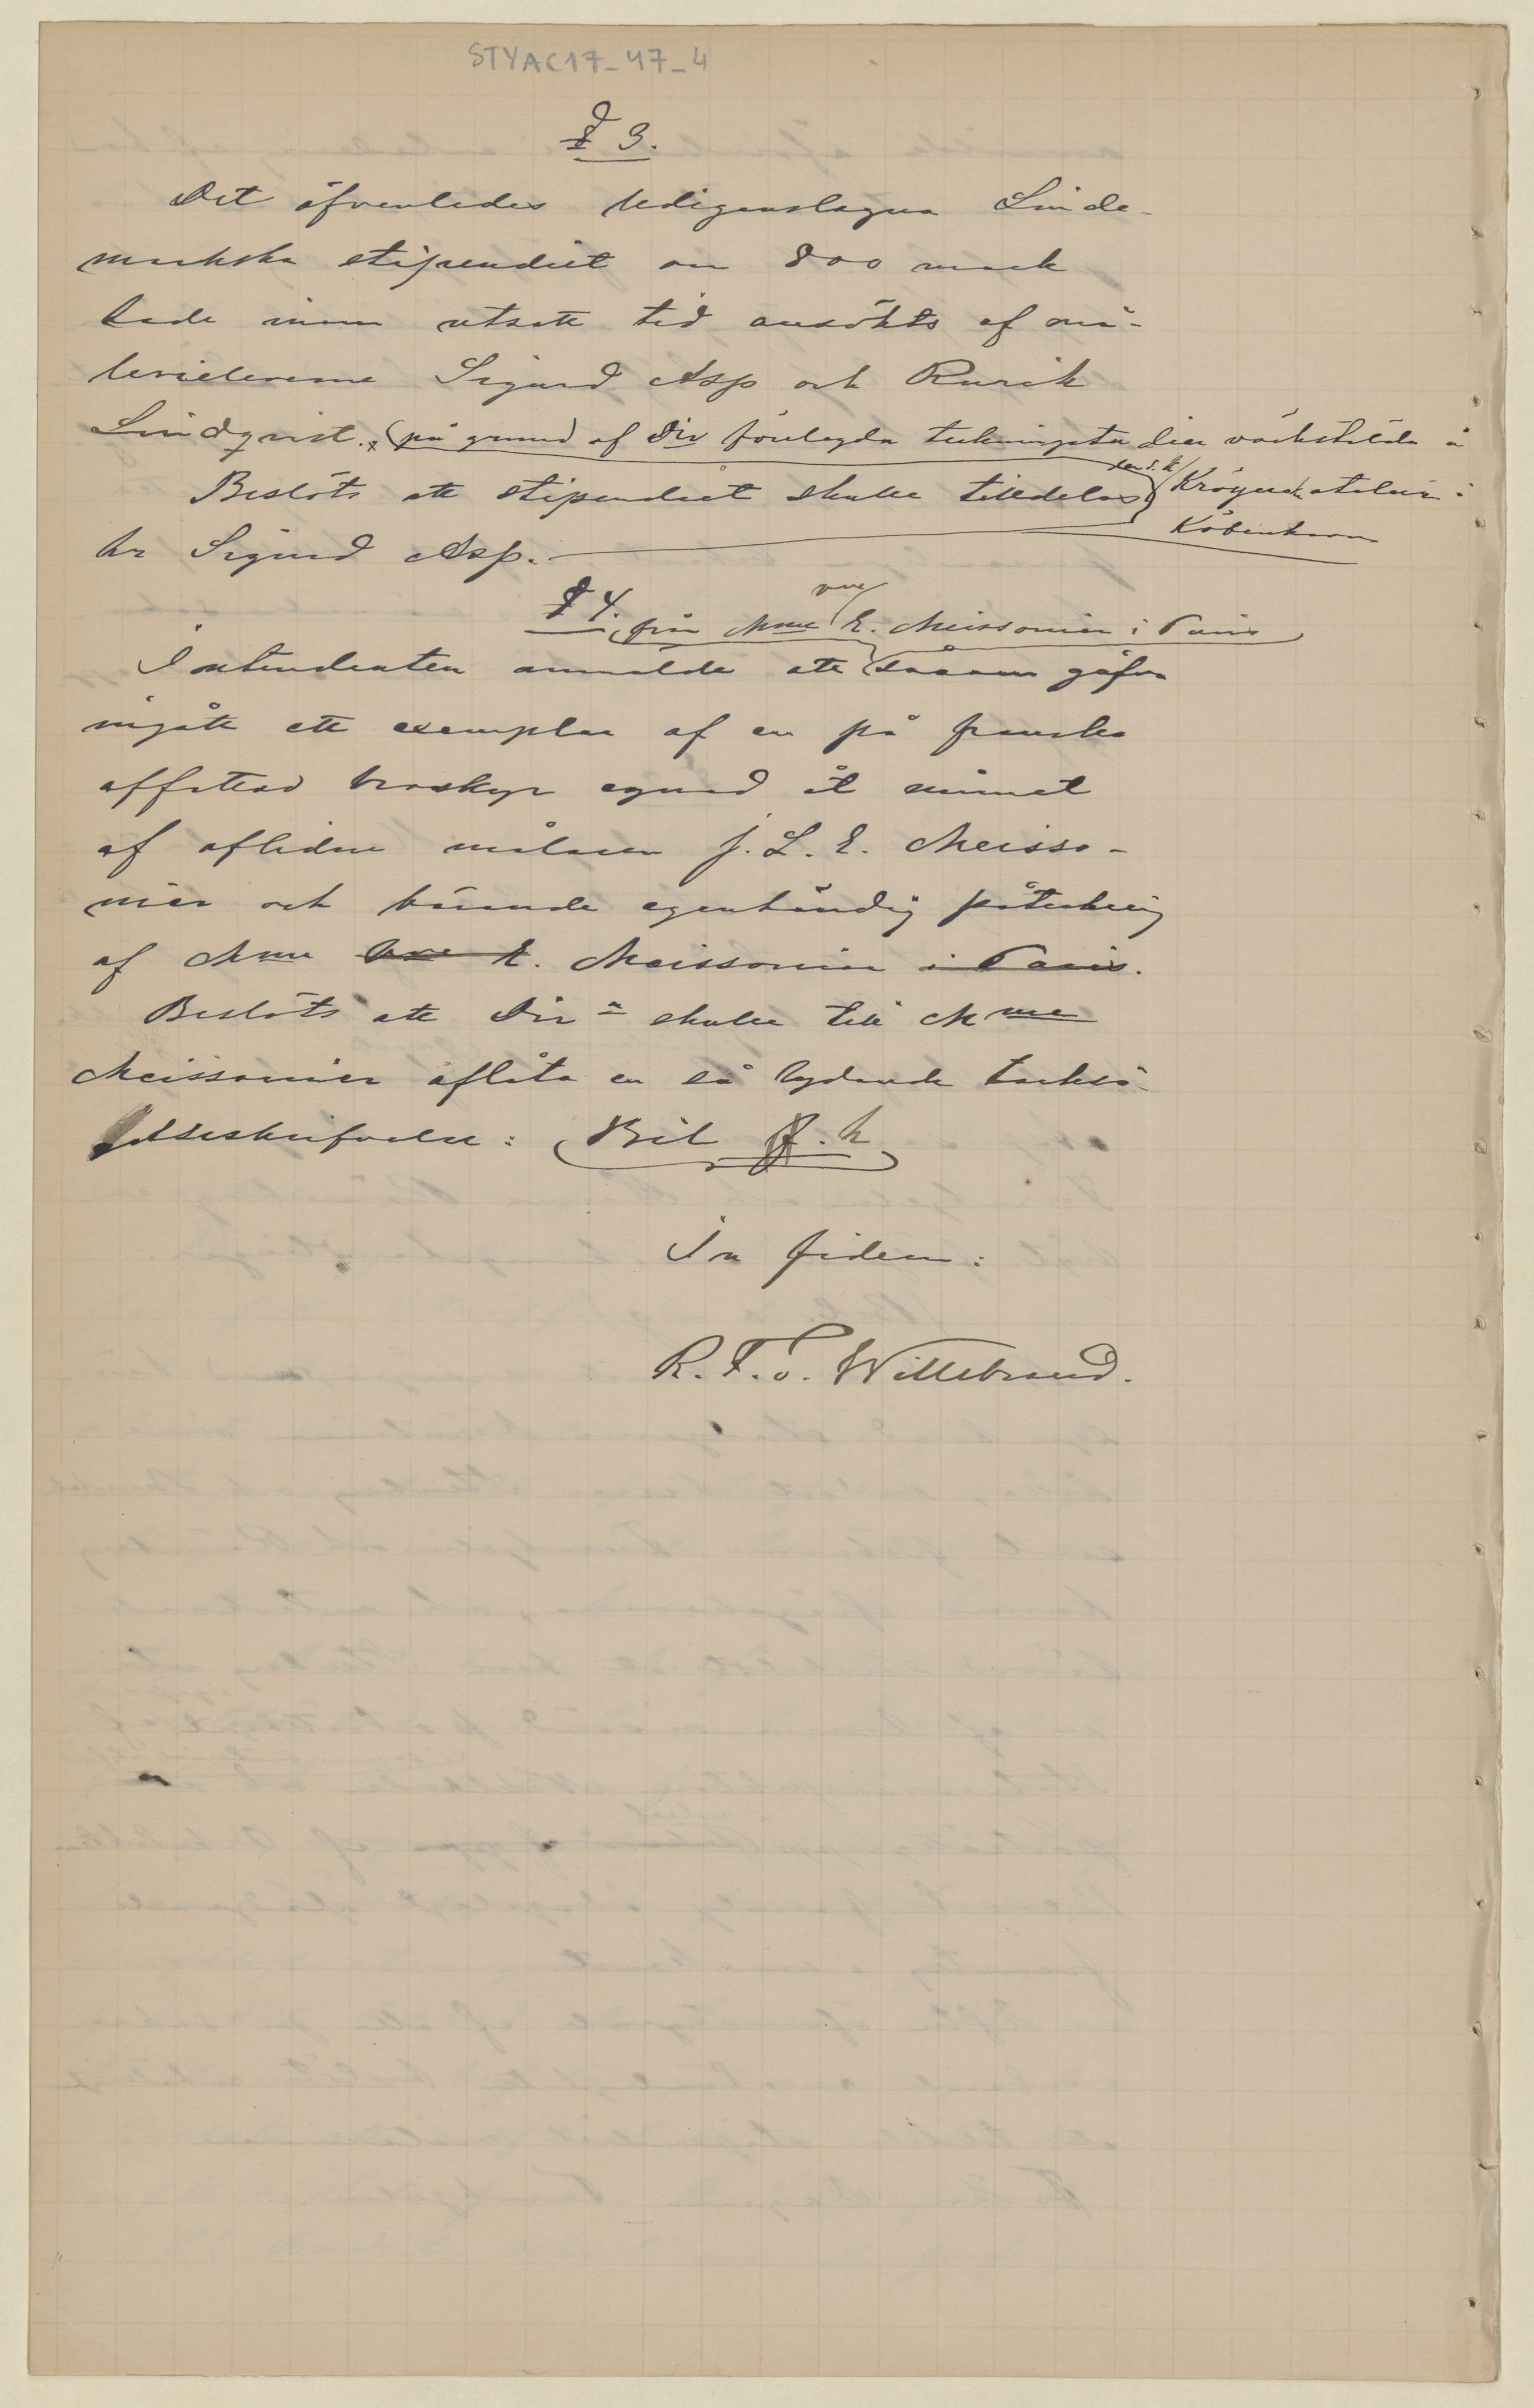 STYAC17_47_4
§ 3.
Det äfvenledes lediganslagna Linde-
markska stipendiet om 800 mark
hade inom utsatt tid ansökts af må-
larieleverne Sigurd Asp och Rurik
Lindqvist. (på grund af Dir förelagda teckningsstudier värkstälda å
den s. k. Kröyerska atelier i
Köbenhavn
Beslöts att stipendiet skulle tilldelas
hr Sigurd Asp.
§ 4.
från Mme vve E. Meissonier i Paris
Intendenten anmälde att såsom gåfva
ingått ett exemplar af en på franska
affattad broskyr egnad åt minnet
af aflidne målaren J. L. E. Meisso-
nier och bärande egenhändig påteckning
af Mme E. Meissonier i Paris.
Beslöts att Dirn skulle till Mme
Meissonier aflåta en så lydande tacksä-
gelseskrifvelse: (Bil h)
In fidem:
R. F. v. Willebrand.